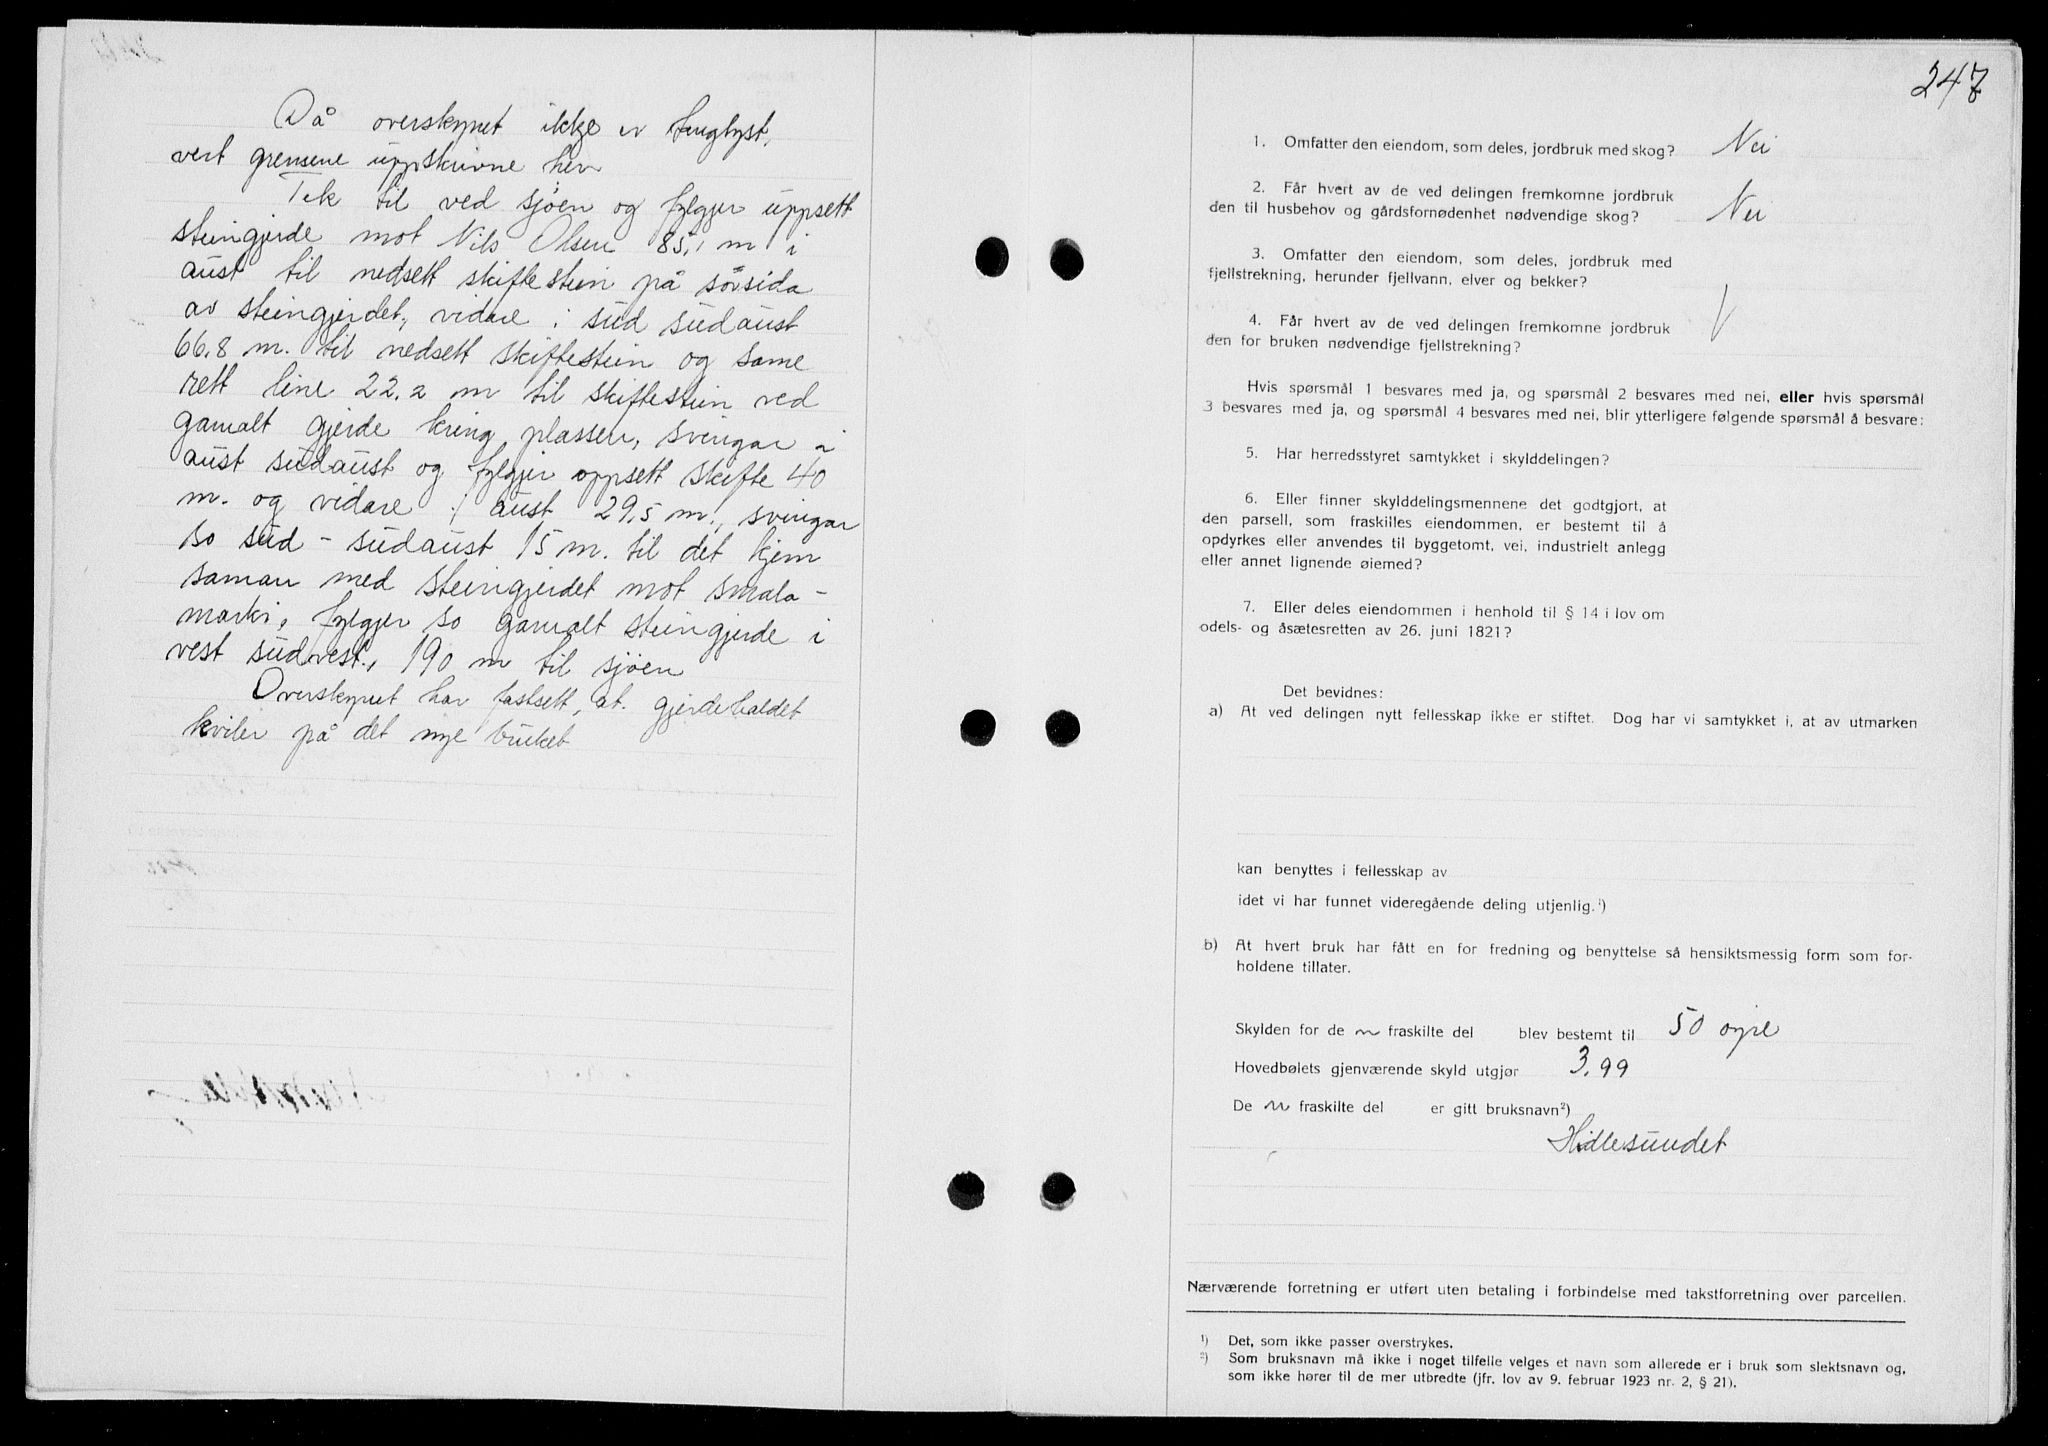 Då overskynet ikkje er tinglyst,
vert grensene uppskrivne her
Tek til ved sjøen og fylgjer uppsett
steingjerde mot Nils Olsen 85,1 m i
aust til nedsett skiftestein på sørsida
av steingjerdet, vidare i süd südaust
66,8 m. til nedsett skiftestein og same
rett line 22,2 m til skiftestein ved
gamalt gjerde kring plassen, svingar i
aust südaust og fylgjer oppsett skifte 40
m. og vidare i aust 29,5 m., svingar
so süd - südaust 15 m. til det kjem
saman med steingjerdet mot smala-
marki, fylgjer so gamalt steingjerde i
vest südvest, 190 m til sjøen
Overskynet har fastsett, at gjerdehaldet
kviler på det nye bruket
247
1. Omfatter den eiendom, som deles, jordbruk med skog? Nei
2. Får hvert av de ved delingen fremkomne jordbruk
den til husbehov og gårdsfornødenhet nødvendige skog? Nei
3. Omfatter den eiendom, som deles, jordbruk med
fjellstrekning, herunder fjellvann, elver og bekker?
4. Får hvert av de ved delingen fremkomne jordbruk
den for bruken nødvendige fjellstrekning?
Hvis spørsmål 1 besvares med ja, og spørsmål 2 besvares med nei, eller hvis spørsmål
3 besvares med ja, og spørsmål 4 besvares med nei, blir ytterligere følgende spørsmål å besvare:
5. Har herredsstyret samtykket i skylddelingen?
6. Eller finner skylddelingsmennene det godtgjort, at
den parsell, som fraskilles eiendommen, er bestemt til å
opdyrkes eller anvendes til byggetomt, vei, industrielt anlegg
eller annet lignende øiemed?
7. Eller deles eiendommen i henhold til § 14 i lov om
odels- og åsætesretten av 26. juni 1821?
Det bevidnes:
a) At ved delingen nytt fellesskap ikke er stiftet. Dog har vi samtykket i, at av utmarken
kan benyttes i fellesskap av
idet vi har funnet videregående deling utjenlig.¹)
b) At hvert bruk har fått en for fredning og benyttelse så hensiktsmessig form som for-
holdene tillater.
Skylden for de n fraskilte del blev bestemt til 50 øyre
Hovedbølets gjenværende skyld utgjør 3,99
De n fraskilte del er gitt bruksnavn²)
Hidlesundet
Nærværende forretning er utført uten betaling i forbindelse med takstforretning over parcellen.
¹) Det, som ikke passer overstrykes.
²) Som bruksnavn må ikke i noget tilfelle velges et navn som allerede er i bruk som slektsnavn og,
som ikke hører til de mer utbredte (jfr. lov av 9. februar 1923 nr. 2, § 21).